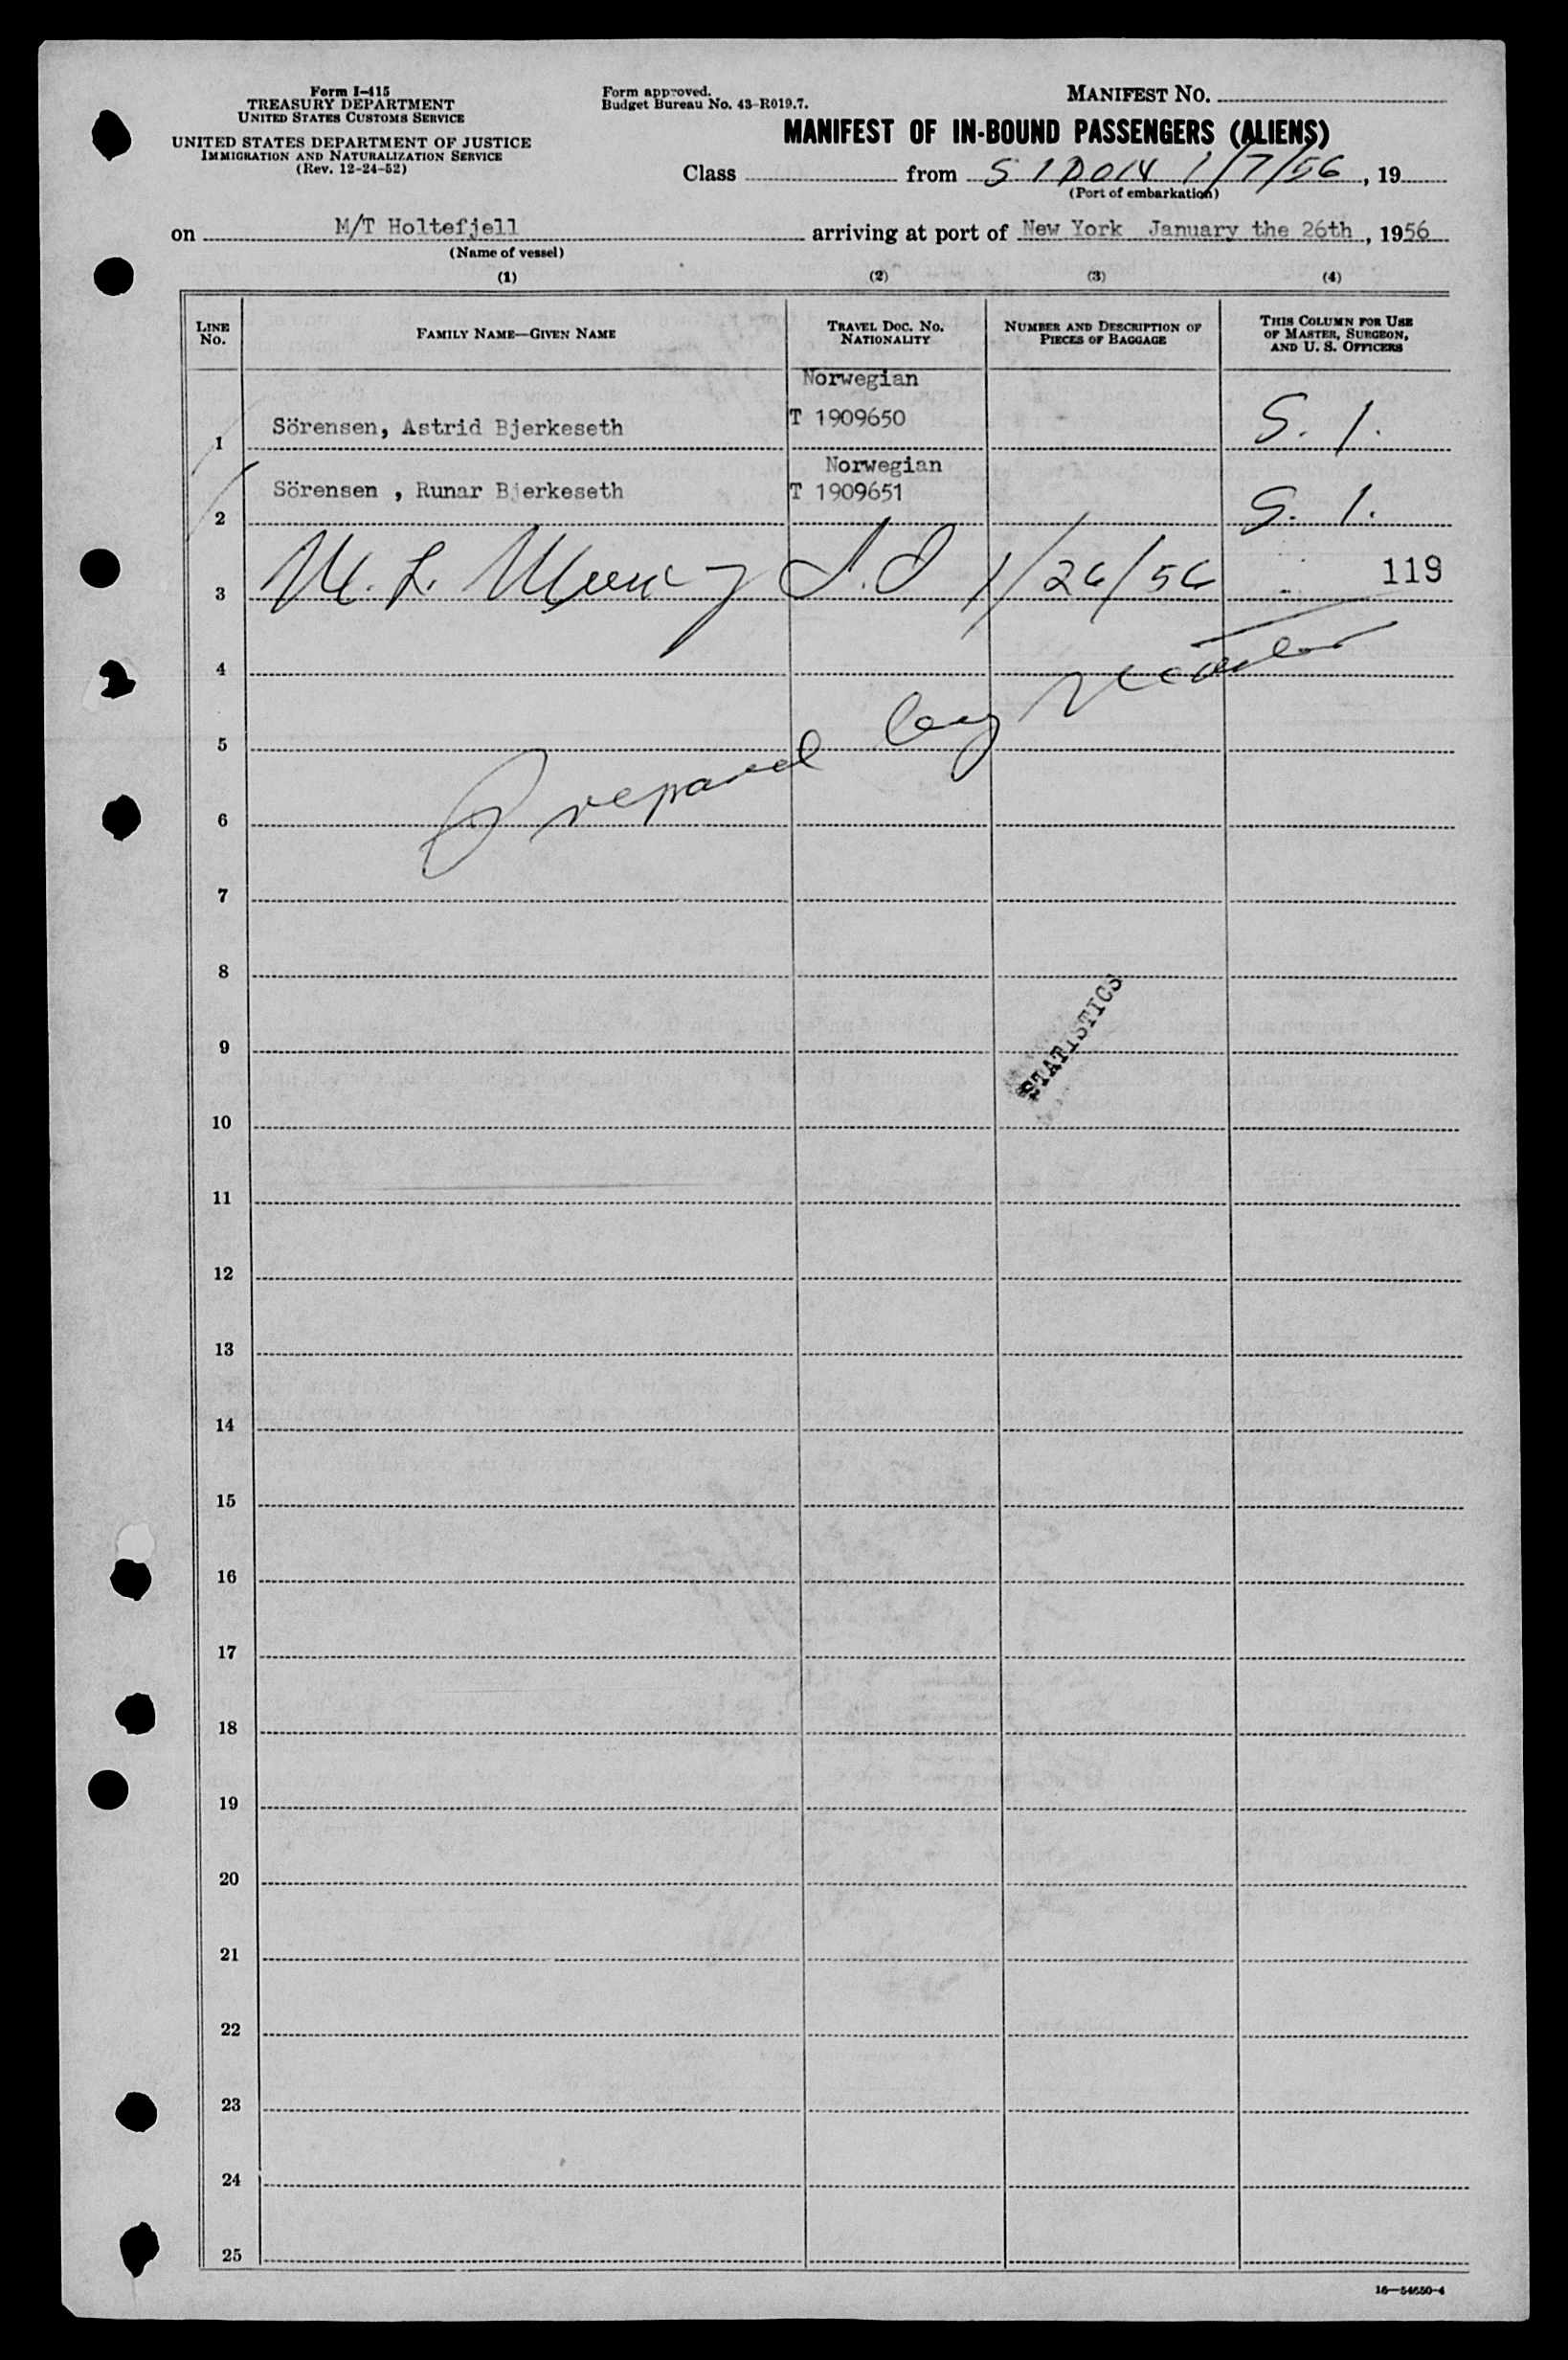 Form I-415
TREASURY DEPARTMENT
UNITED STATES CUSTOMS SERVICE
UNITED STATES DEPARTMENT OF JUSTICE
IMMIGRATION AND NATURALIZATION SERVICE
(Rev. 12-24-52)
Form approved.
Budget Bureau No. 43-R019.7.
MANIFEST NO.
MANIFEST OF IN-BOUND PASSENGERS (ALIENS)
Class from SIDON 1/7/56, 19
(Port of embarkation)
on M/T Holtefjell arriving at port of New York January the 26th, 1956
(Name of vessel)
(1) (2) (3) (4)
LINE NO.
FAMILY NAME—GIVEN NAME
TRAVEL DOC. NO. NATIONALITY
NUMBER AND DESCRIPTION OF PIECES OF BAGGAGE
THIS COLUMN FOR USE OF MASTER, SURGEON, AND U. S. OFFICERS
Norwegian
1 Sörensen, Astrid Bjerkeseth T 1909650 S. 1.
Norwegian
2 Sörensen , Runar Bjerkeseth T 1909651 S. 1.
3 M. L. 1/26/56 119
4
Prepared by
5
6
7
8
STATISTICS
9
10
11
12
13
14
15
16
17
18
19
20
21
22
23
24
25
16—54650-4